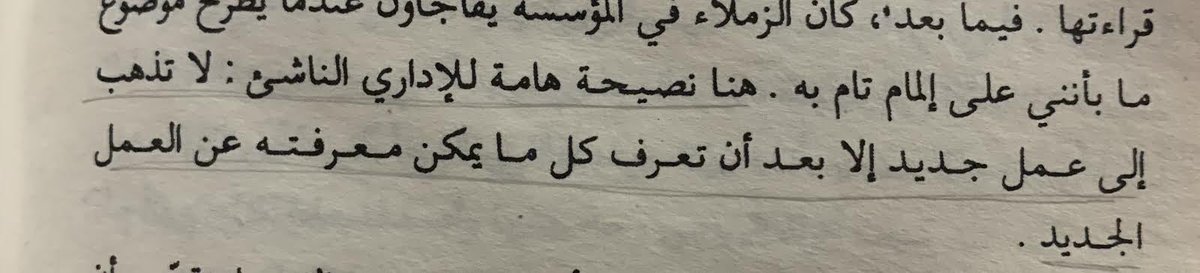 قراءتها . فيما بعد ، كان الزملاء في المؤسسة يفاجأون عندما يطرح موضوع
ما بأنني على إلمام تام به . هنا نصيحة هامة للإداري الناشئ : لا تذهب
إلى عمل جديد إلا بعد أن تعرف كل ما يمكن معرفته عن العمل
الجديد .